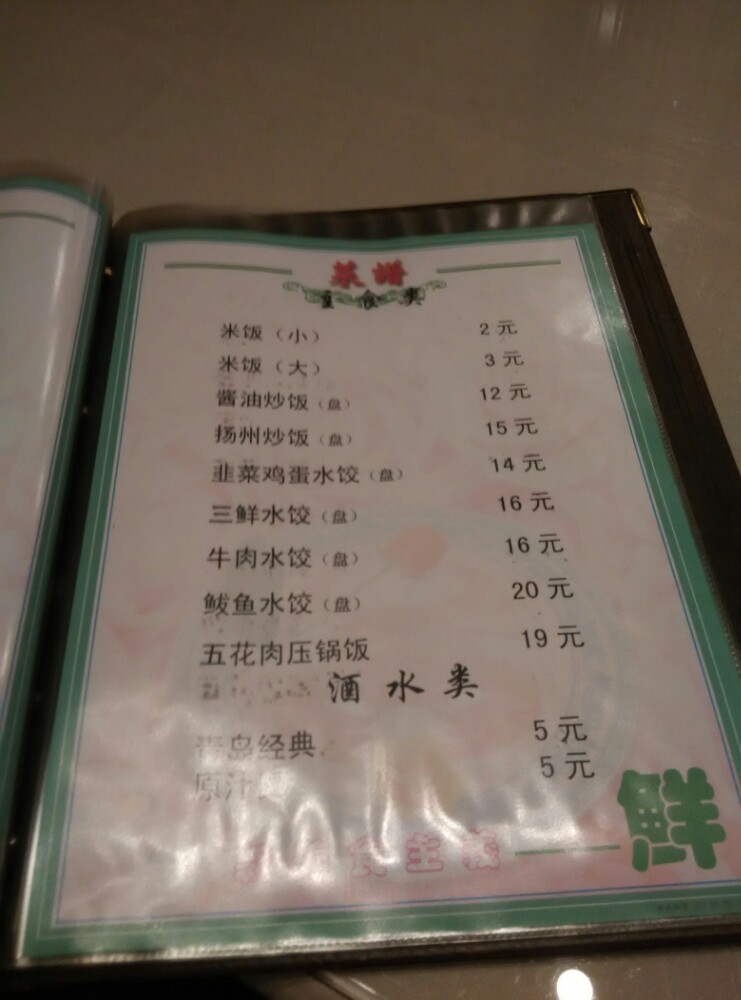 菜谱
主食类
米饭（小） 2元
米饭（大） 3元
酱油炒饭（盘） 12元
扬州炒饭（盘） 15元
韭菜鸡蛋水饺（盘） 14元
三鲜水饺（盘） 16元
牛肉水饺（盘） 16元
鲅鱼水饺（盘） 20元
五花肉压锅饭 19元
酒水类
青岛经典 5元
原汁 5元
食主义
鲜